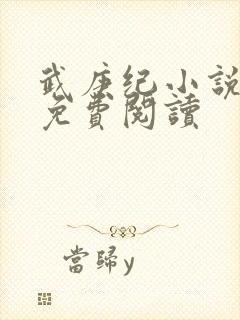 武庚纪小說
免費閱讀
當歸y